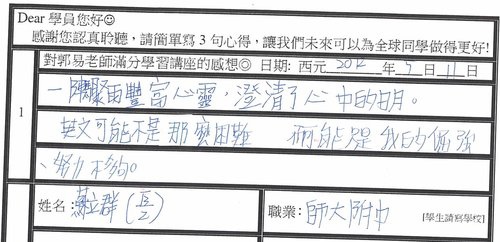 Dear 學員您好☺
感謝您認真聆聽，請簡單寫 3 句心得，讓我們未來可以為全球同學做得更好!
對郭易老師滿分學習講座的感想◎ 日期: 西元 2012 年 5 月 11 日
一 豐富心靈，澄清了心中的
1
英文可能不是那麼困難 而能是我的倔強
、努力不夠。
姓名: 蘇立群 (高二) 職業: 師大附中 [學生請寫學校]